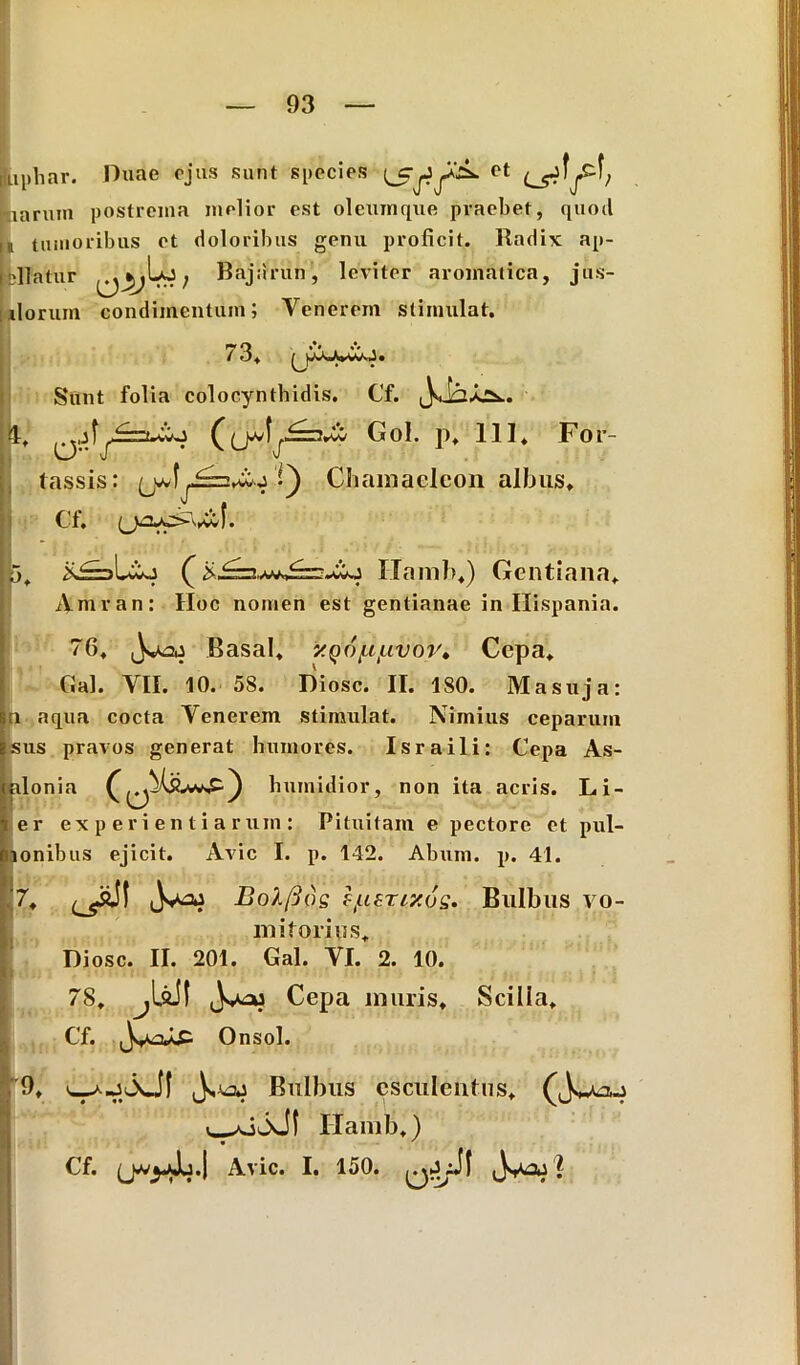 — 93 —
uphar. Duae ejus sunt species خنزيرى et اعرابى,
iarum postrema melior est oleumque praebet, quod
a tumoribus et doloribus genu proficit. Radix ap-
ellatur بيارون, Bajârun, leviter aromatica, jus-
ulorum condimentum; Venerem stimulat.
73.
Sunt folia colocynthidis. Cf. حنظل.
4. Gol. p. 111. For-
tassis: Chamaeleon albus.
Cf. اشخيص.
5. بشاكة Hamb.) Gentiana.
Amran: Hoc nomen est gentianae in Hispania.
76. بصل Basal. κρόμμνον. Cepa.
Gal. VII. 10. 58. Diosc. II. 180. Masuja:
n aqua cocta Venerem stimulat. Nimius ceparum
sus pravos generat humores. Israili: Cepa As-
alonia (عسقلان) humidior, non ita acris. Li-
er experientiarum: Pituitam e pectore et pul-
monibus ejicit. Avic I. p. 142. Abum. p. 41.
7. بصل القى Βολβὸς ἐμετικός. Bulbus vo-
mitorius.
Diosc. II. 201. Gal. VI. 2. 10.
78. بصل الفار Cepa muris. Scilla.
Cf. عنصل Onsol.
79. بصل الذيب Bulbus esculentus. (بصل
الذنب Hamb.)
Cf. بلبوس. Avic. I. 150. بصل الزيز?